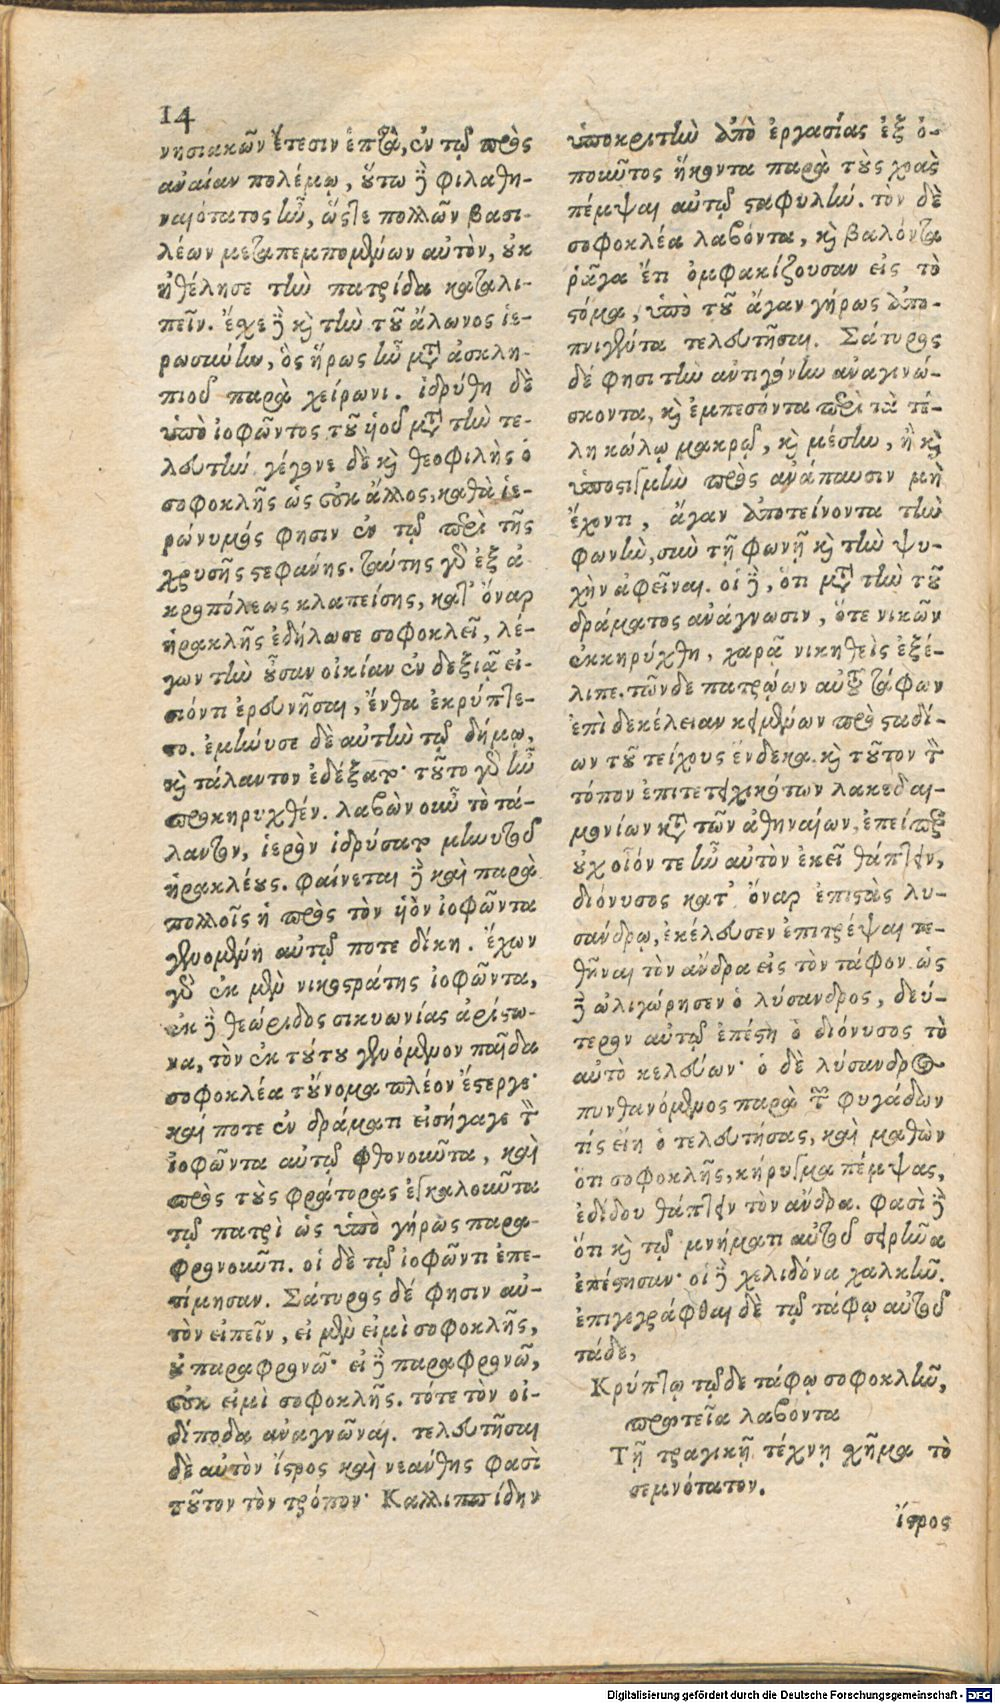 14
νησιακῶν ἔτεσιν ἑπτὰ, ἐν τῷ πρὸς
ἀναίαν πολέμῳ, οὕτω δὲ φιλαθη-
ναιότατος ἦν, ὥστε πολλῶν βασι-
λέων μεταπεμπομένων αὐτὸν, οὐκ
ἠθέλησε τὴν πατρίδα καταλι-
πεῖν. ἔσχε δὲ καὶ τὴν τοῦ ἄλωνος ἱε-
ρωσύνην, ὃς ἥρως ἦν μετὰ ἀσκλη-
πιοῦ παρὰ χείρωνι. ἱδρύθη δὲ
ὑπὸ ἰοφῶντος τοῦ ἱοῦ μετὰ τὴν τε-
λευτήν. γέγονε δὲ καὶ θεοφιλὴς ὁ
σοφοκλῆς ὡς οὐκ ἄλλος, καθὰ ἱε-
ρώνυμός φησιν ἐν τῷ περὶ τῆς
χρυσῆς στεφάνης. ταύτης γὰρ ἐξ ἀ
κροπόλεως κλαπείσης, κατ' ὄναρ
ἡρακλῆς ἐδήλωσε σοφοκλεῖ, λέ-
γων τὴν οὖσαν οἰκίαν ἐν δεξιᾷ εἰ-
σιόντι ἐρευνῆσαι, ἔνθα ἐκρύπτε-
το. ἐμήνυσε δὲ αὐτὴν τῷ δήμῳ,
καὶ τάλαντον ἐδέξατο· τοῦτο γὰρ ἦν
προκηρυχθέν. λαβὼν οὖν τὸ τά-
λαντον, ἱερὸν ἱδρύσατο μηνυτοῦ
ἡρακλέους. φαίνεται δὲ καὶ παρὰ
πολλοῖς ἡ πρὸς τὸν ἱὸν ἰοφῶντα
γενομένη αὐτῷ ποτε δίκη. ἔχων
γὰρ ἐκ μὲν νικοστράτης ἰοφῶντα,
ἐκ δὲ θεώριδος σικυωνίας ἀρίστω-
να, τὸν ἐκ τούτου γενόμενον παῖδα
σοφοκλέα τοὔνομα πλέον ἔστεργε·
καί ποτε ἐν δράματι εἰσήγαγε τὸν
ἰοφῶντα αὐτῷ φθονοῦντα, καὶ
πρὸς τοὺς φράτορας ἐγκαλοῦντα
τῷ πατρὶ ὡς ὑπὸ γήρως παρα-
φρονοῦντι. οἱ δὲ τῷ ἰοφῶντι ἐπε-
τίμησαν. Σάτυρος δέ φησιν αὐ-
τὸν εἰπεῖν, εἰ μὲν εἰμὶ σοφοκλῆς,
οὐ παραφρονῶ· εἰ δὲ παραφρονῶ,
οὐκ εἰμὶ σοφοκλῆς. τότε τὸν οἰ-
δίποδα ἀναγνῶναι. τελευτῆσαι
δὲ αὐτὸν ἴστρος καὶ νεάνθης φασὶ
τοῦτον τὸν τρόπον· Καλλιππίδην
ὑποκριτὴν ἀπὸ ἐργασίας ἐξ ὀ-
ποῦντος ἥκοντα παρὰ τοὺς χοὰς
πέμψαι αὐτῷ σταφυλήν. τὸν δὲ
σοφοκλέα λαβόντα, καὶ βαλόντα
ῥᾶγα ἔτι ὀμφακίζουσαν εἰς τὸ
στόμα, ὑπὸ τοῦ ἄγαν γήρως ἀπο-
πνιγέντα τελευτῆσαι. Σάτυρος
δέ φησι τὴν ἀντιγόνην ἀναγινώ-
σκοντα, καὶ ἐμπεσόντα περὶ τὰ τέ-
λη κώλῳ μακρῷ, καὶ μέσην, ἢ καὶ
ὑποστιγμὴν πρὸς ἀνάπαυσιν μὴ
ἔχοντι, ἄγαν ἀποτείνοντα τὴν
φωνὴν, σὺν τῇ φωνῇ καὶ τὴν ψυ-
χὴν ἀφεῖναι. οἱ δὲ, ὅτι μετὰ τὴν τοῦ
δράματος ἀνάγνωσιν, ὅτε νικῶν
ἐκκηρύχθη, χαρᾷ νικηθεὶς ἐξέ-
λιπε. τῶνδε πατρῴων αὐτοῦ τάφων
ἐπὶ δεκέλειαν κειμένων πρὸ σταδί-
ων τοῦ τείχους ἕνδεκα. καὶ τοῦτον τὸν
τόπον ἐπιτετειχικότων λακεδαι-
μονίων κατὰ τῶν ἀθηναίων, ἐπείπερ
οὐχ οἷόν τε ἦν αὐτὸν ἐκεῖ θάπτειν,
διόνυσος κατ' ὄναρ ἐπιστὰς λυ-
σάνδρῳ, ἐκέλευσεν ἐπιτρέψαι τε-
θῆναι τὸν ἄνδρα εἰς τὸν τάφον. ὡς
δὲ ὠλιγώρησεν ὁ λύσανδρος, δεύ-
τερον αὐτῷ ἐπέστη ὁ διόνυσος τὸ
αὐτὸ κελεύων· ὁ δὲ λύσανδρος
πυνθανόμενος παρὰ τῶν φυγάδων
τίς εἴη ὁ τελευτήσας, καὶ μαθὼν
ὅτι σοφοκλῆς, κήρυγμα πέμψας,
ἐδίδου θάπτειν τὸν ἄνδρα. φασὶ δὲ
ὅτι καὶ τῷ μνήματι αὐτοῦ σειρῆνα
ἐπέστησαν· οἱ δὲ χελιδόνα χαλκῆν.
ἐπιγεγράφθαι δὲ τῷ τάφῳ αὐτοῦ
τάδε,
Κρύπτω τῷδε τάφῳ σοφοκλῆν,
πρωτεῖα λαβόντα
Τῇ τραγικῇ τέχνῃ σχῆμα τὸ
σεμνότατον.
ἴστρος
Digitalisierung gefördert durch die Deutsche Forschungsgemeinschaft - DFG